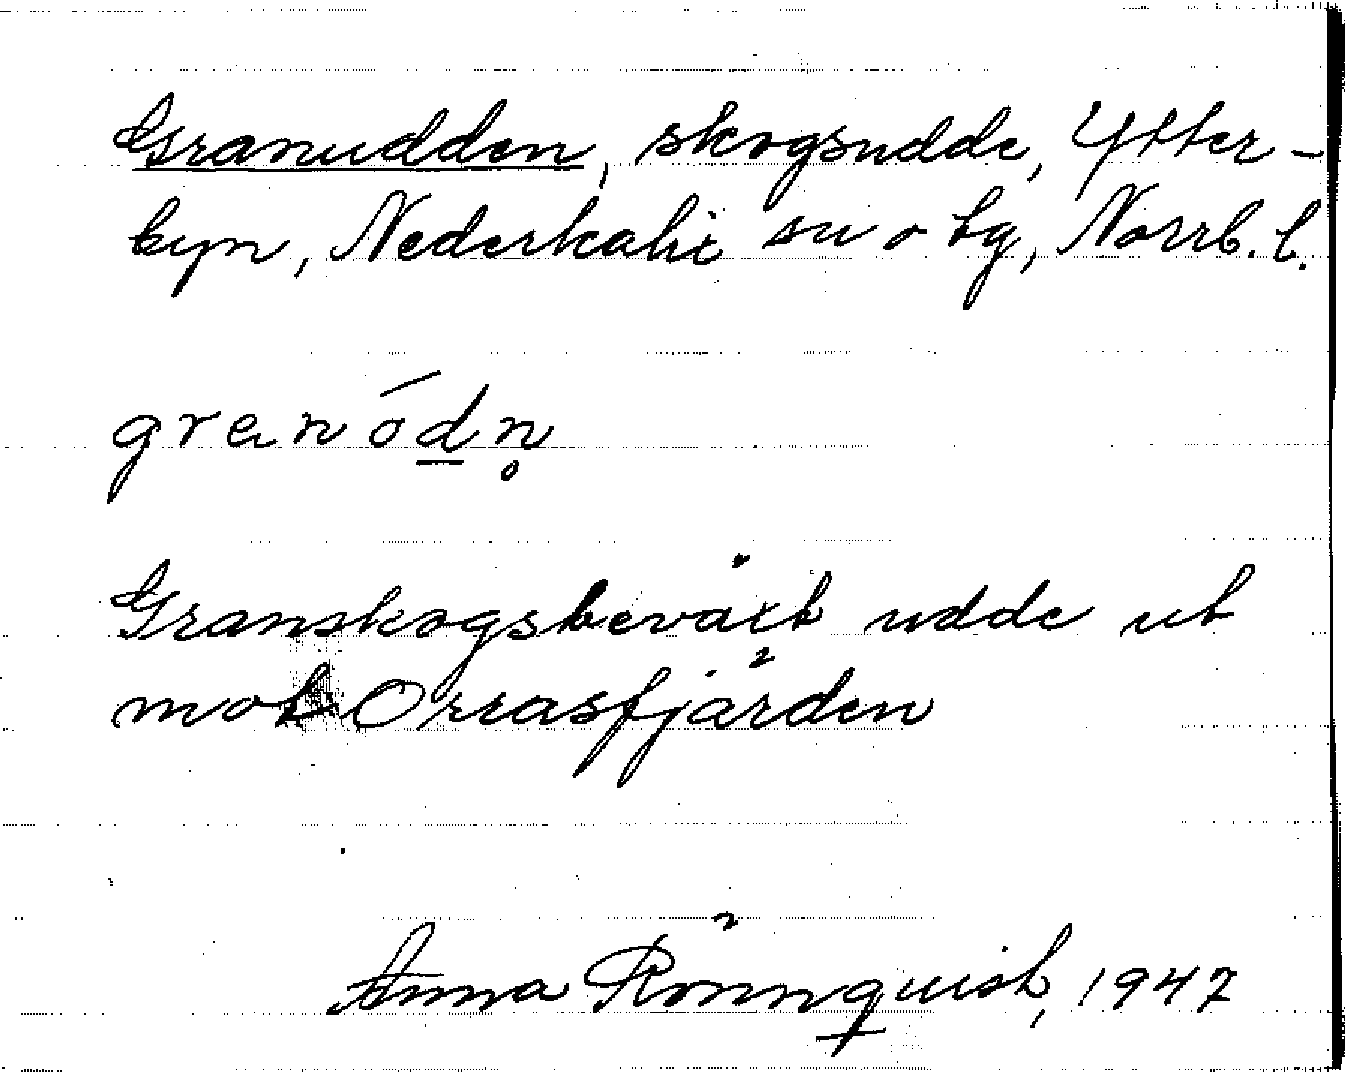 Granudden, skogsudde, Ytter-
byn, Nederkalix sn o tg, Norrb. l.
granódn̥
Granskogsbeväxt udde ut
mot Orrasfjärden
Anna Rönnquist, 1947